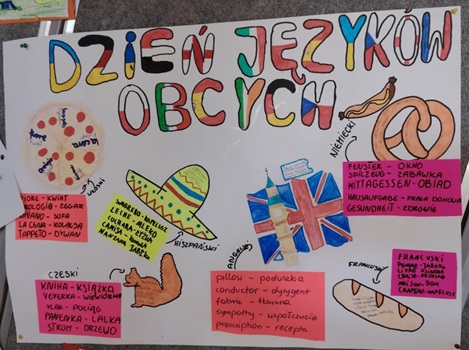 DZIEŃ JĘZYKÓW
OBCYCH
NIEMIECKI
FENSTER - OKNO
SPILZEUG - ZABAWKA
MITTAGESSEN - OBIAD
HAUSAUFGABE - PRACA DOMOWA
GESUNDHEIT - ZDROWIE
WŁOSKI
FIORE - KWIAT
OROLOGIA - ZEGAR
DIVANO - SOFA
LA CENA - KOLACJA
TAPPETO - DYWAN
HISZPAŃSKI
SOMBRERO - KAPELUSZ
LECHE - MLEKO
MANZANA - JABŁKO
ANGIELSKI
pillow - poduszka
conductor - dyrygent
fabric - tkanina
sympathy - współczucie
prescription - recepta
CZESKI
KNIHA - KSIĄŻKA
VEVERKA - WIEWIÓRKA
VLAK - POCIĄG
PANENKA - LALKA
STROM - DRZEWO
FRANCUSKI
FRANCUSKI
POMME - JABŁKO
LIVRE - KSIĄŻKA
MAISON - DOM
CHAPEAU - KAPELUSZ